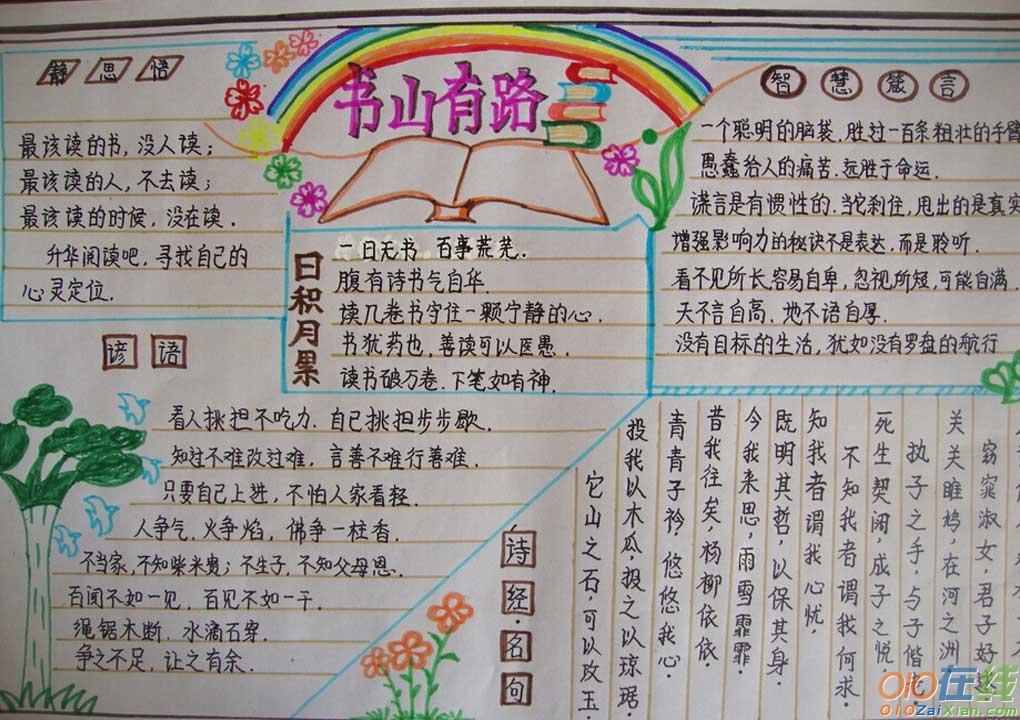 静思悟
最该读的书，没人读；
最该读的人，不去读；
最该读的时候，没在读．
升华阅读吧，寻找自己的
心灵定位．
书山有路
智慧箴言
一个聪明的脑袋，胜过一百条粗壮的手臂
愚蠢给人的痛苦．远胜于命运．
谎言是有惯性的．当它刹住，甩出的是真实
增强影响力的秘诀不是表达，而是聆听．
看不见所长，容易自卑，忽视所短，可能自满．
天不言自高、地不语自厚．
没有目标的生活，犹如没有罗盘的航行
日积月累
一日无书 百事荒芜．
腹有诗书气自华．
读几卷书守住一颗宁静的心．
书犹药也，善读可以医愚．
读书破万卷．下笔如有神．
谚语
看人挑担不吃力．自己挑担步步歇．
知过不难改过难，言善不难行善难．
只要自己上进，不怕人家看轻．
人争气．火争焰，佛争一柱香．
不当家，不知柴米贵；不生子，不知父母恩．
百闻不如一见，百见不如一干．
绳锯木断．水滴石穿．
争之不足，让之有余．
诗经·名句
窈窕淑女，君子好逑
关关雎鸠，在河之洲
执子之手，与子偕老
死生契阔，成子之悦，
不知我者谓我何求
知我者谓我心忧，
既明其哲，以保其身．
今我来思，雨雪霏霏．
昔我往矣，杨柳依依．
青青子衿，悠悠我心．
投我以木瓜．报之以琼琚．
它山之石，可以攻玉
010在线
010ZaiXian.com